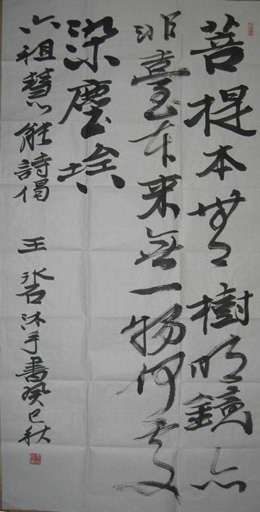 菩提本無樹明鏡亦
非臺本来無一物何處
染塵埃
六祖慧能詩偈 王 沐手書癸巳秋